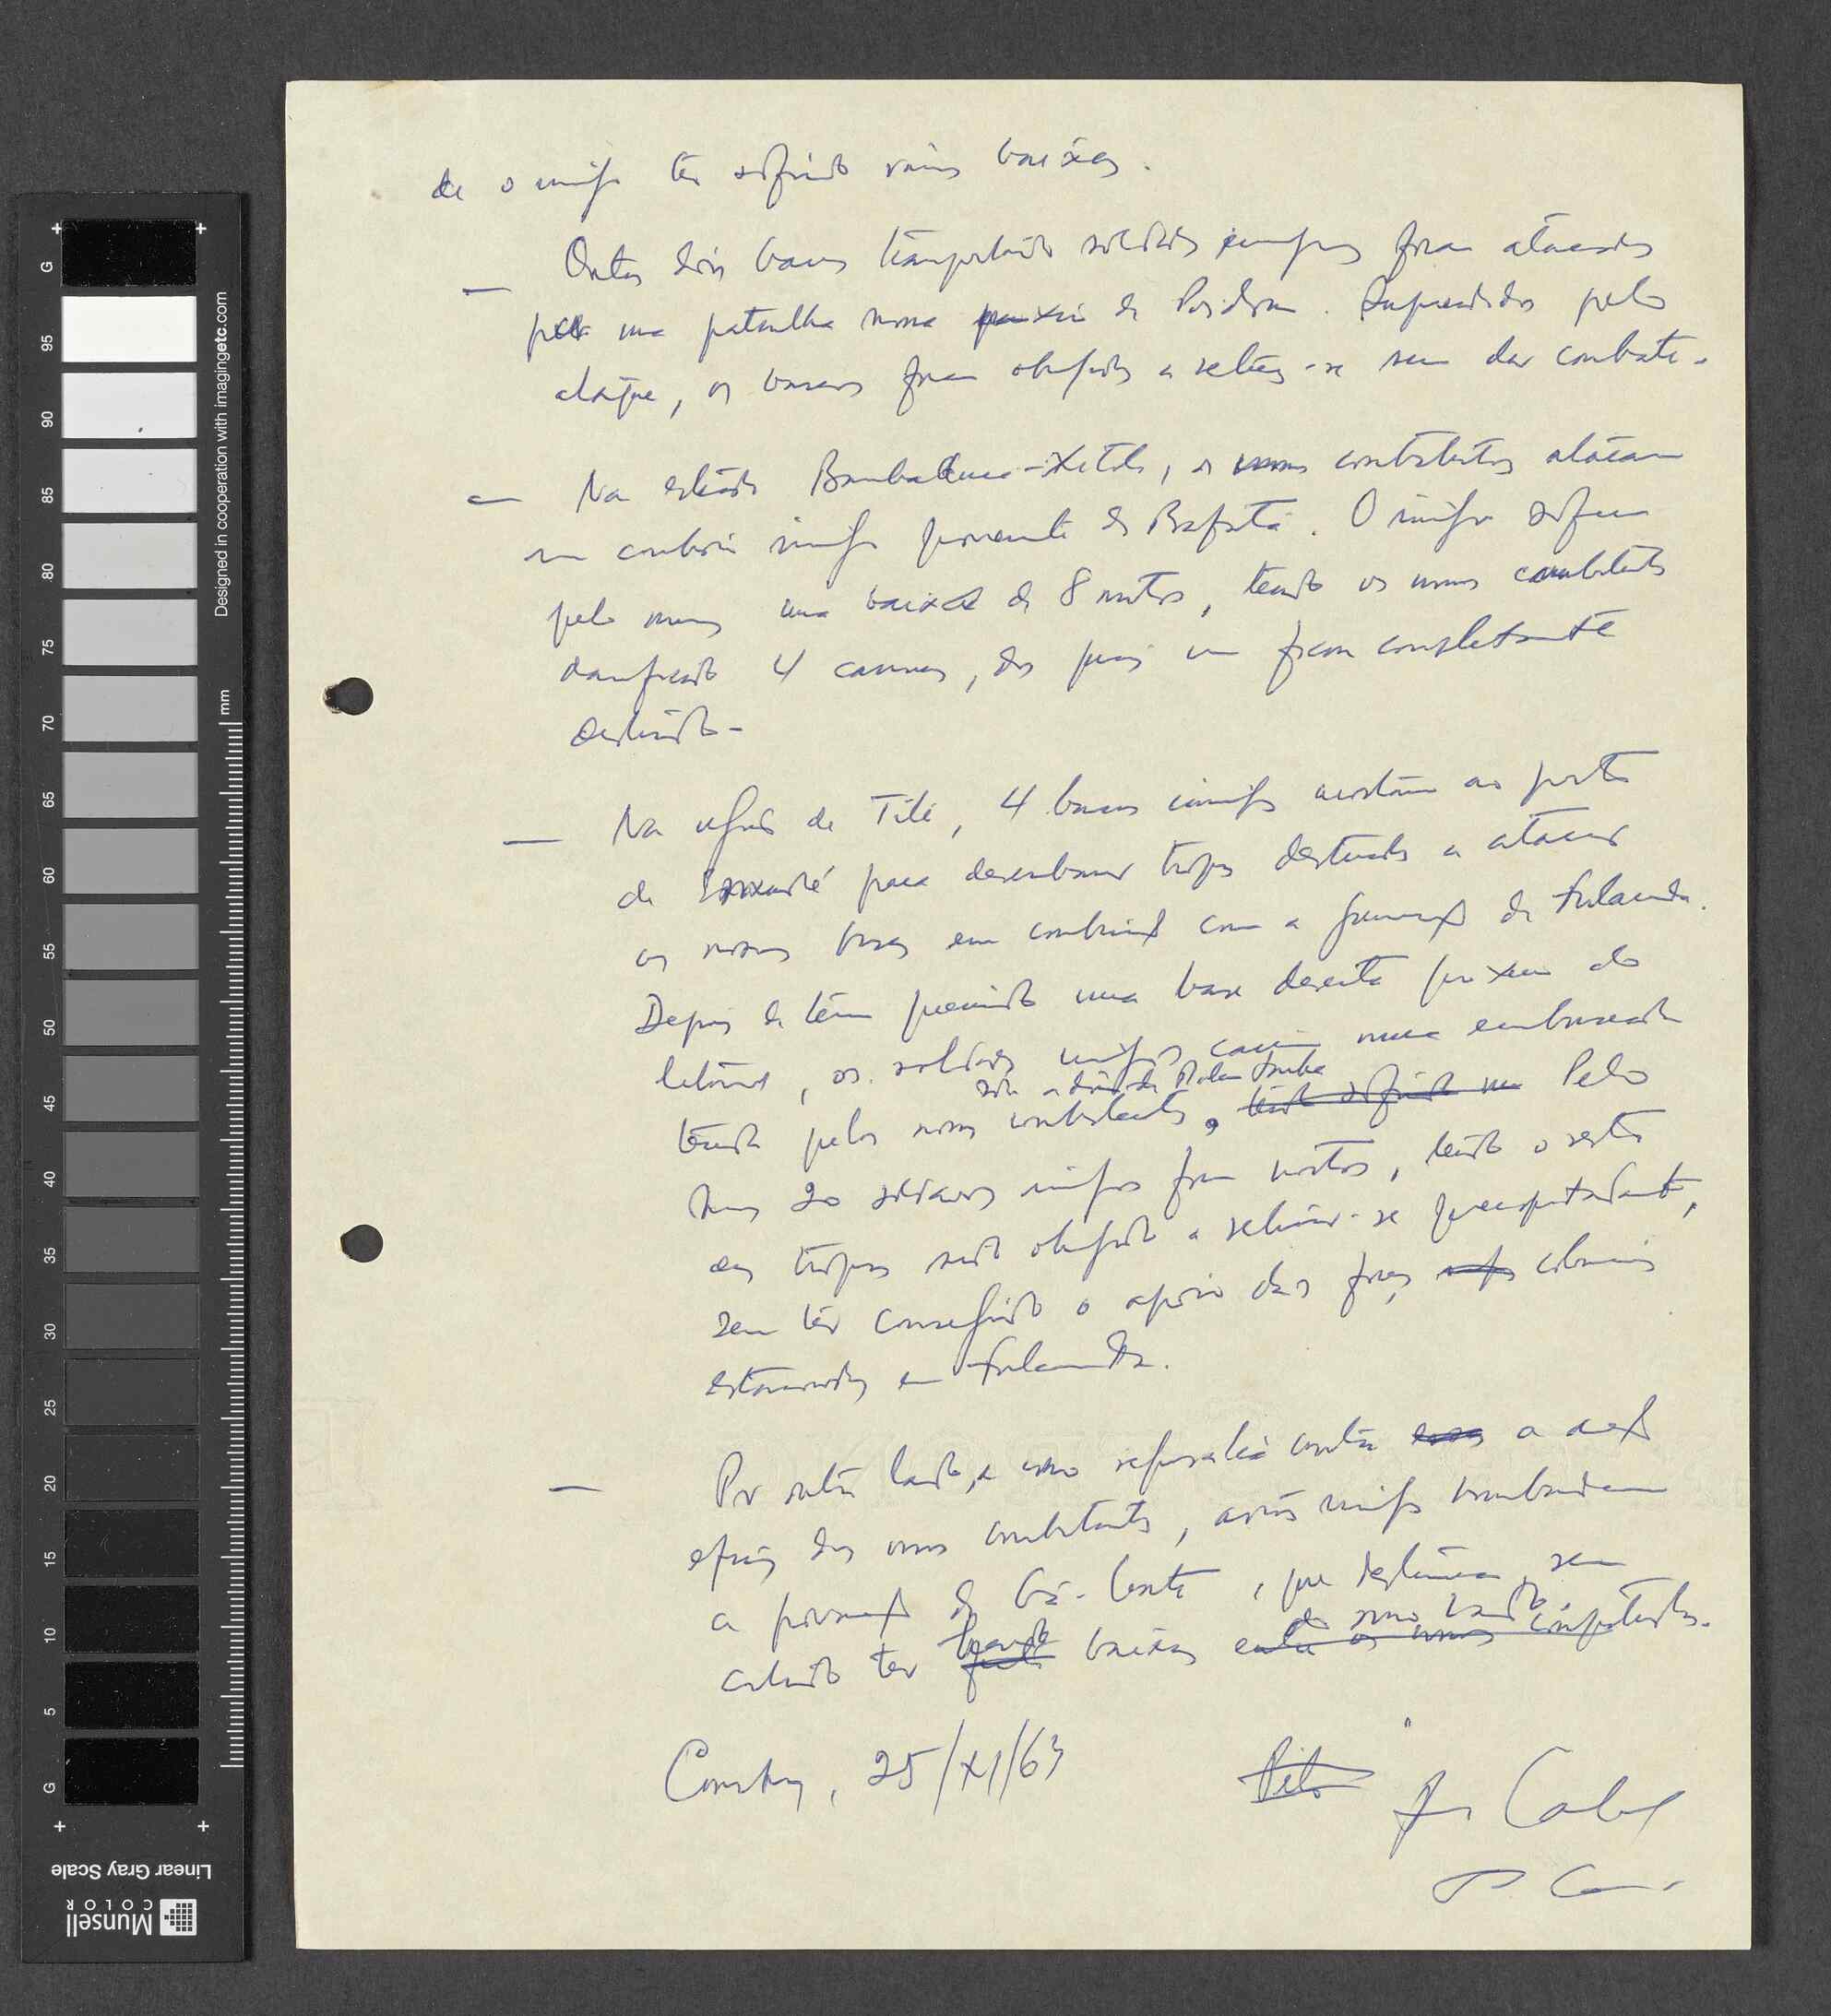 de o inimigo ter sofrido várias baixas.
— Outros dois barcos transportando soldados inimigos foram atacados
por uma patrulha nossa de. Surpreendidos pelo
ataque, os barcos foram obrigados a retirar-se sem dar combate.
— Na estrada Bambadinca-Xitole, os nossos combatentes atacaram
um comboio inimigo proveniente de Bafatá. O inimigo sofreu
pelo menos uma baixa de 8 mortos, tendo os nossos combatentes
danificado 4 camiões, dos quais um ficou completamente
destruído.
— Na região de Tite, 4 barcos inimigos acostaram ao porto
de Enxudé para desembarcar tropas destinadas a atacar
as nossas forças em combinação com a guarnição de Fulacunda.
Depois de terem queimado uma base deserta próximo do
litoral, os soldados inimigos caíram numa emboscada
sob a direção de
pelos nossos combatentes, tendo sofrido um Pelo
menos 20 soldados inimigos foram mortos, tendo o resto
das tropas sido obrigado a retirar-se precipitadamente,
sem ter conseguido o apoio das forças coloniais
estacionadas em Fulacunda.
— Por outro lado, e como represália contra a acção
eficaz dos nossos combatentes, aviões inimigos bombardearam
a povoação de, que destruíram, sem
do nosso lado.
contudo ter havido baixas entre os nossos compatriotas.
Conakry, 25/XI/63
Cabral